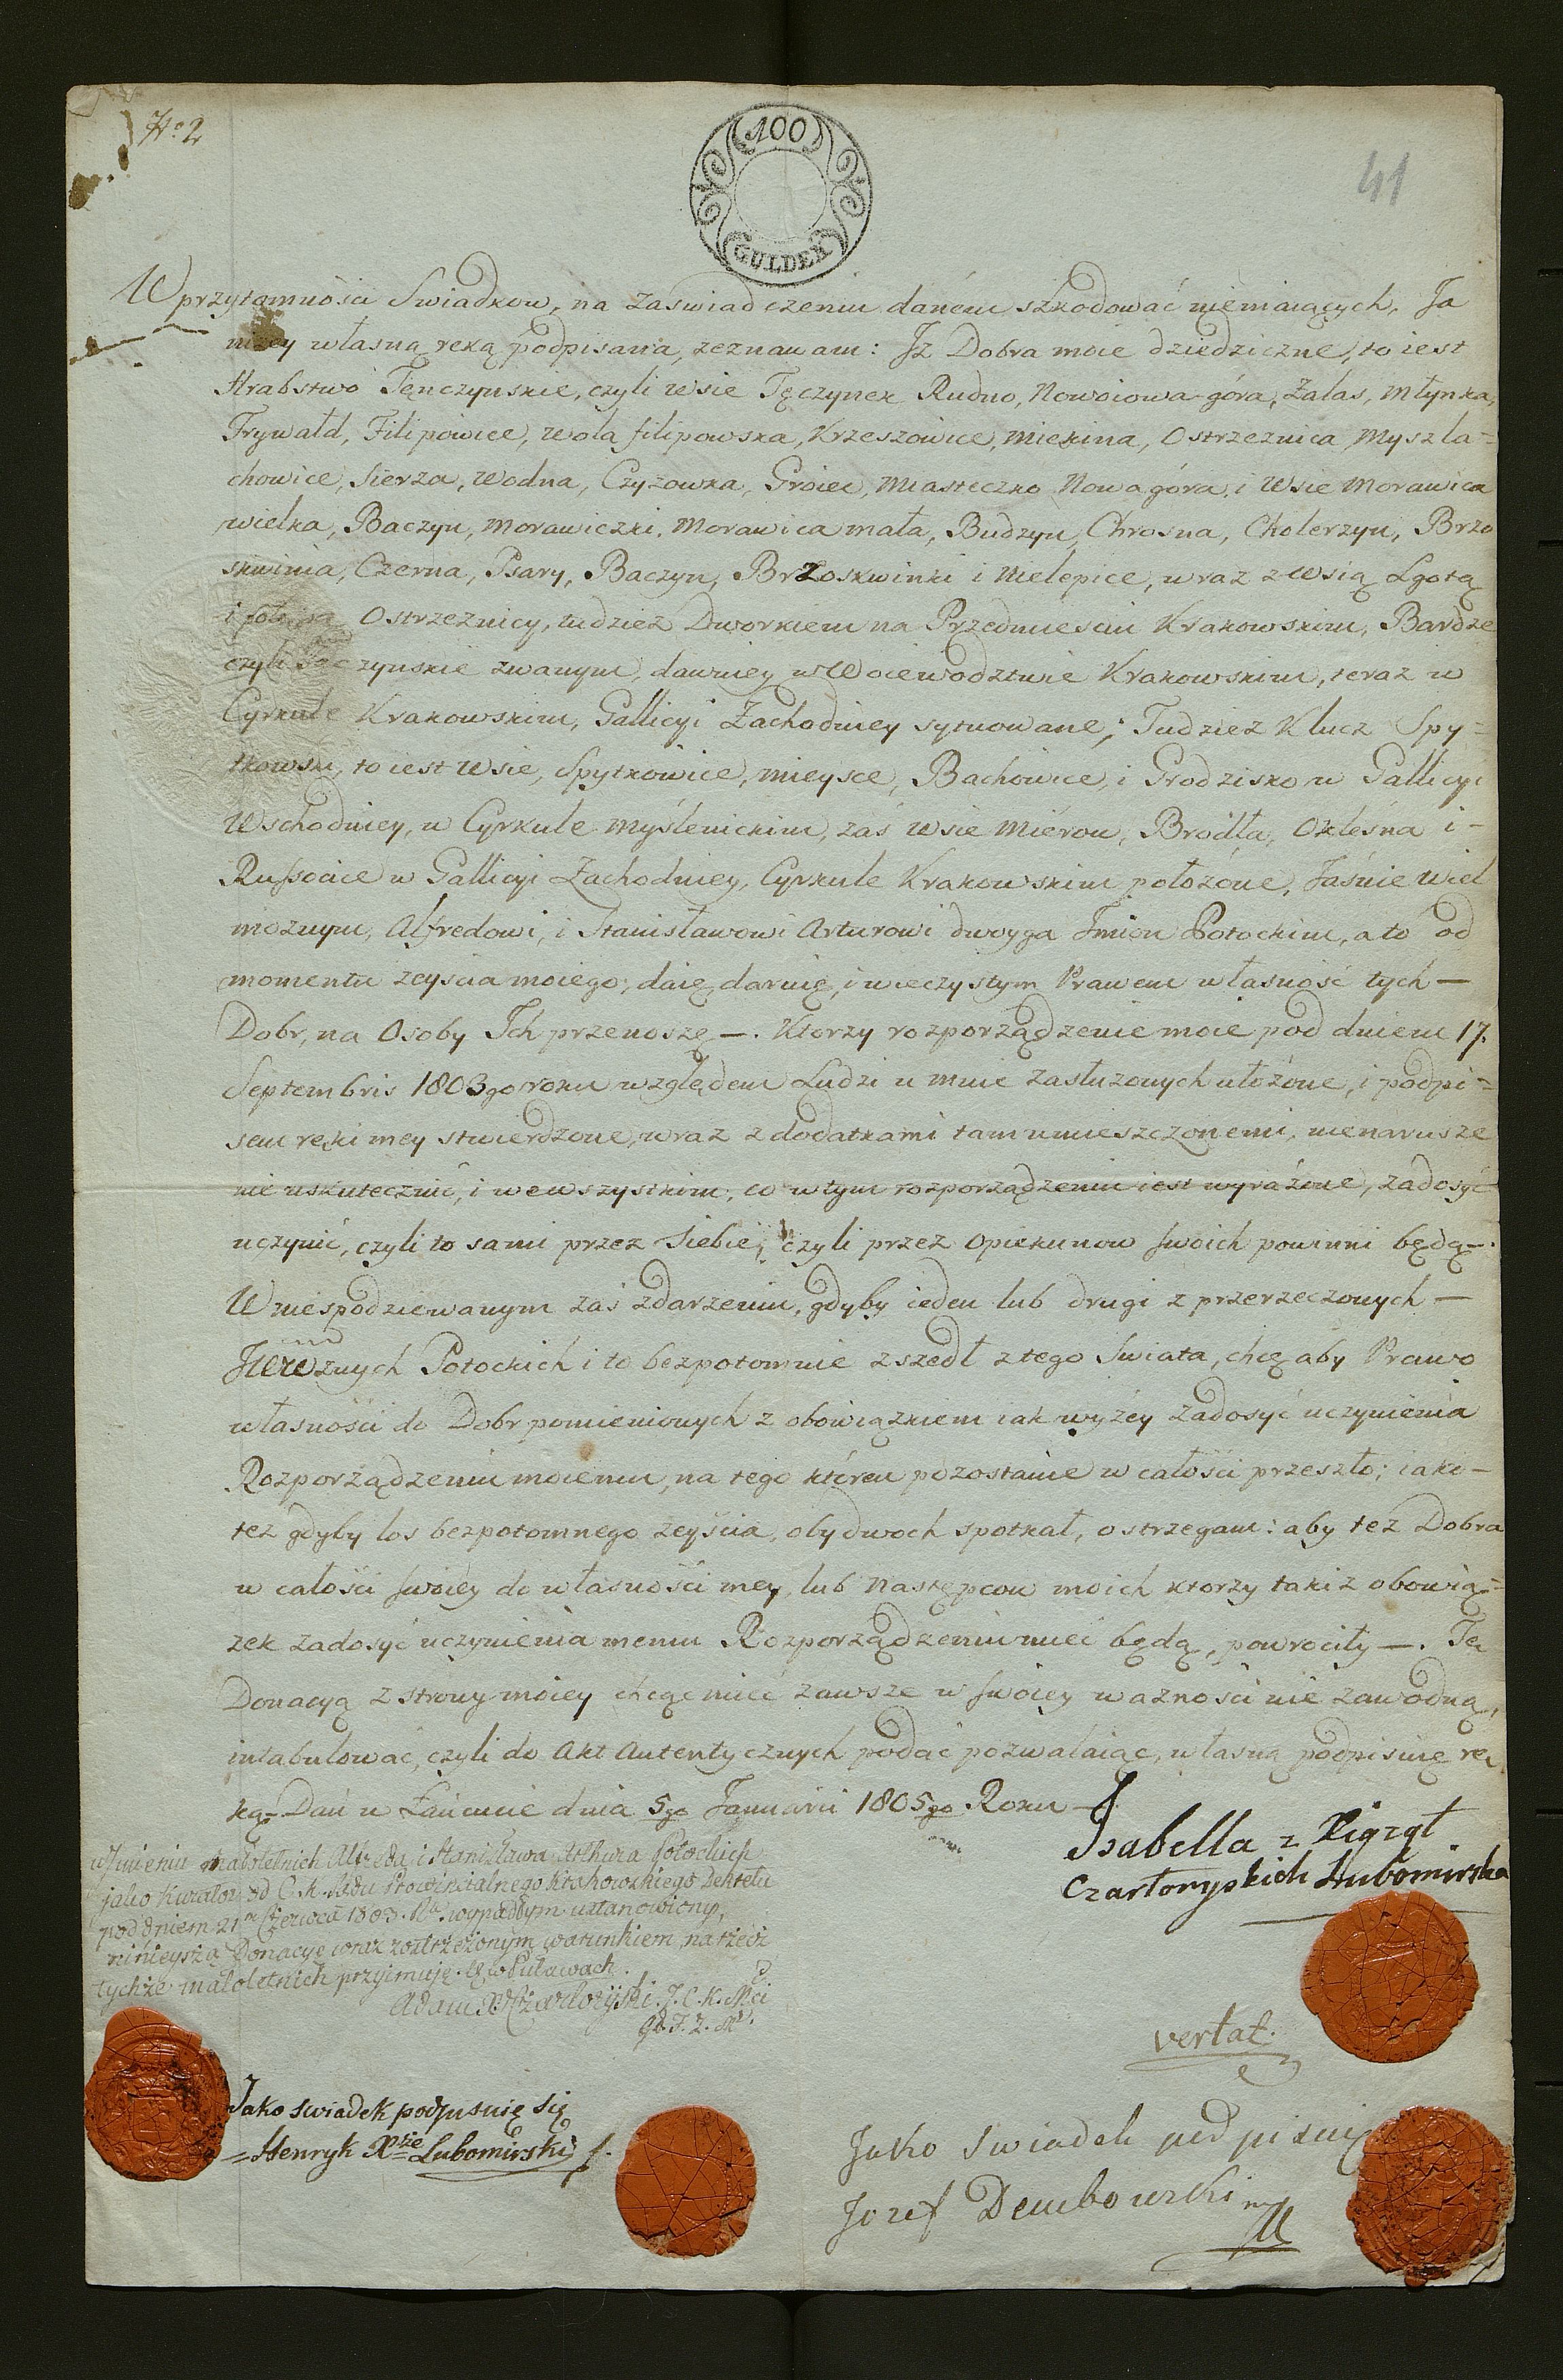 No 2
100
GULDEN
41
W przytomności Swiadkow, na zaświadczeniu daném szkodować niemaiących, Ja
niżey własną ręką podpisana, zeznawam: Jż Dobra moie dziedziczne, to iest
Hrabstwo Tęnczynskie, czyli wsie Tęczynek Rudno, Nowoiowa góra, Zalas, Młynka,
Frywałd, Filipowice, Wola filipowska, Krzeszowice, Miekina, Ostrzeznica Myszla=
chowice, Sierza, Wodna, Czyzowka, Groiec, Miasteczko Nowa góra, i Wsie Morawica
wielka, Baczyn, Morawiczki, Morawica mała, Budzyn, Chrosna, Cholerzyn, Brzo
skwinia, Czerna, Psary, Baczyn, Brzoskwinki i Nielepice, wraz z Wsią Lgotą
i Ostrzeznicy, tudzież Dworkiem na Przedmiesciu Krakowskim, Bardze
czyli Tęczynskie zwanym, dawniey w Woiewodztwie Krakowskim, teraz w
Cyrkule Krakowskim, Gallicyi Zachodniey sytuowane; Tudzież Klucz Spy=
tkowski, to iest Wsie, Spytkowice, Mieysce, Bachowice, i Grodzisko w Gallicyi
Wschodniey, w Cyrkule Myślenickim, zaś Wsie Mirow, Brodła, Okleśna i -
Russocice w Gallicyi Zachodniey, Cyrkule Krakowskim położone, Jaśnie Wiel
moznym, Alfredowi, i Stanisławowi Arturowi dwoyga Jmion Potockim, a to od
momentu zeyścia moiego, daię, daruię, i wieczystym Prawem własność tych —
Dobr, na Osoby Ich przenoszę —. Ktorzy rozporządzenie moie pod dniem 17.
Septembris 1803go roku względem Ludzi u mnie zasłużonych ułożone, i podpi=
sem ręki mey stwierdzone, wraz z dodatkami tam umieszczonemi, nienarusze
nie uskutecznić, i we wszystkim, co w tym rozporządzeniu iest wyrażone, zadosyć
uczynić, czyli to sami przez siebie, czyli przez Opiekunow swoich powinni będą —.
W niespodziewanym zaś zdarzeniu, gdyby ieden lub drugi z przerzeczonych —
JWWznych Potockich i to bezpotomnie zszedł z tego Swiata, chcę aby Prawo
własności do Dobr pomienionych z obowiązkiem iak wyżey zadosyć uczynienia
Rozporządzeniu moiemu, na tego któren pozostanie w całości przeszło; iako -
też gdyby los bezpotomnego zeyścia, obydwoch spotkał, ostrzegam: aby też Dobra
w całości swoiey do własności mey, lub Następcow moich ktorzy takiż obowią=
zek zadosyć uczynienia memu Rozporządzeniu mieć będą, powrociły —. Tę
Donacyą z strony moiey chcąc mieć zawsze w swoiey ważności nie zawodną,
intabulować, czyli do Akt Autentycznych podać pozwalaiąc, własną podpisuię rę
ką — Dan w Łańcucie dnia 5go Januarii 1805go Roku —
Isabella z Xiążąt
Czartoryskich Lubomirska
w Jmieniu małoletnich Alfreda i Stanisława Arthura Potockich
jako Kurator od C. K. Sądu Prowincialnego Krakowskiego Dekretu
pod dniem 21m Czerwca 1803. Ru. wypadłym ustanowiony,
ninieyszą Donacyę wraz zastrzeżonym warunkiem na rzecz
tychże małoletnich przyimuję. w Puławach.
Adam X Czartoryski. J. C. K. Mci
vertat.
Jako swiadek podpisuię się
= Henryk Xże Lubomirski
Jako Swiadek podpisuię
Jozef Dembowski